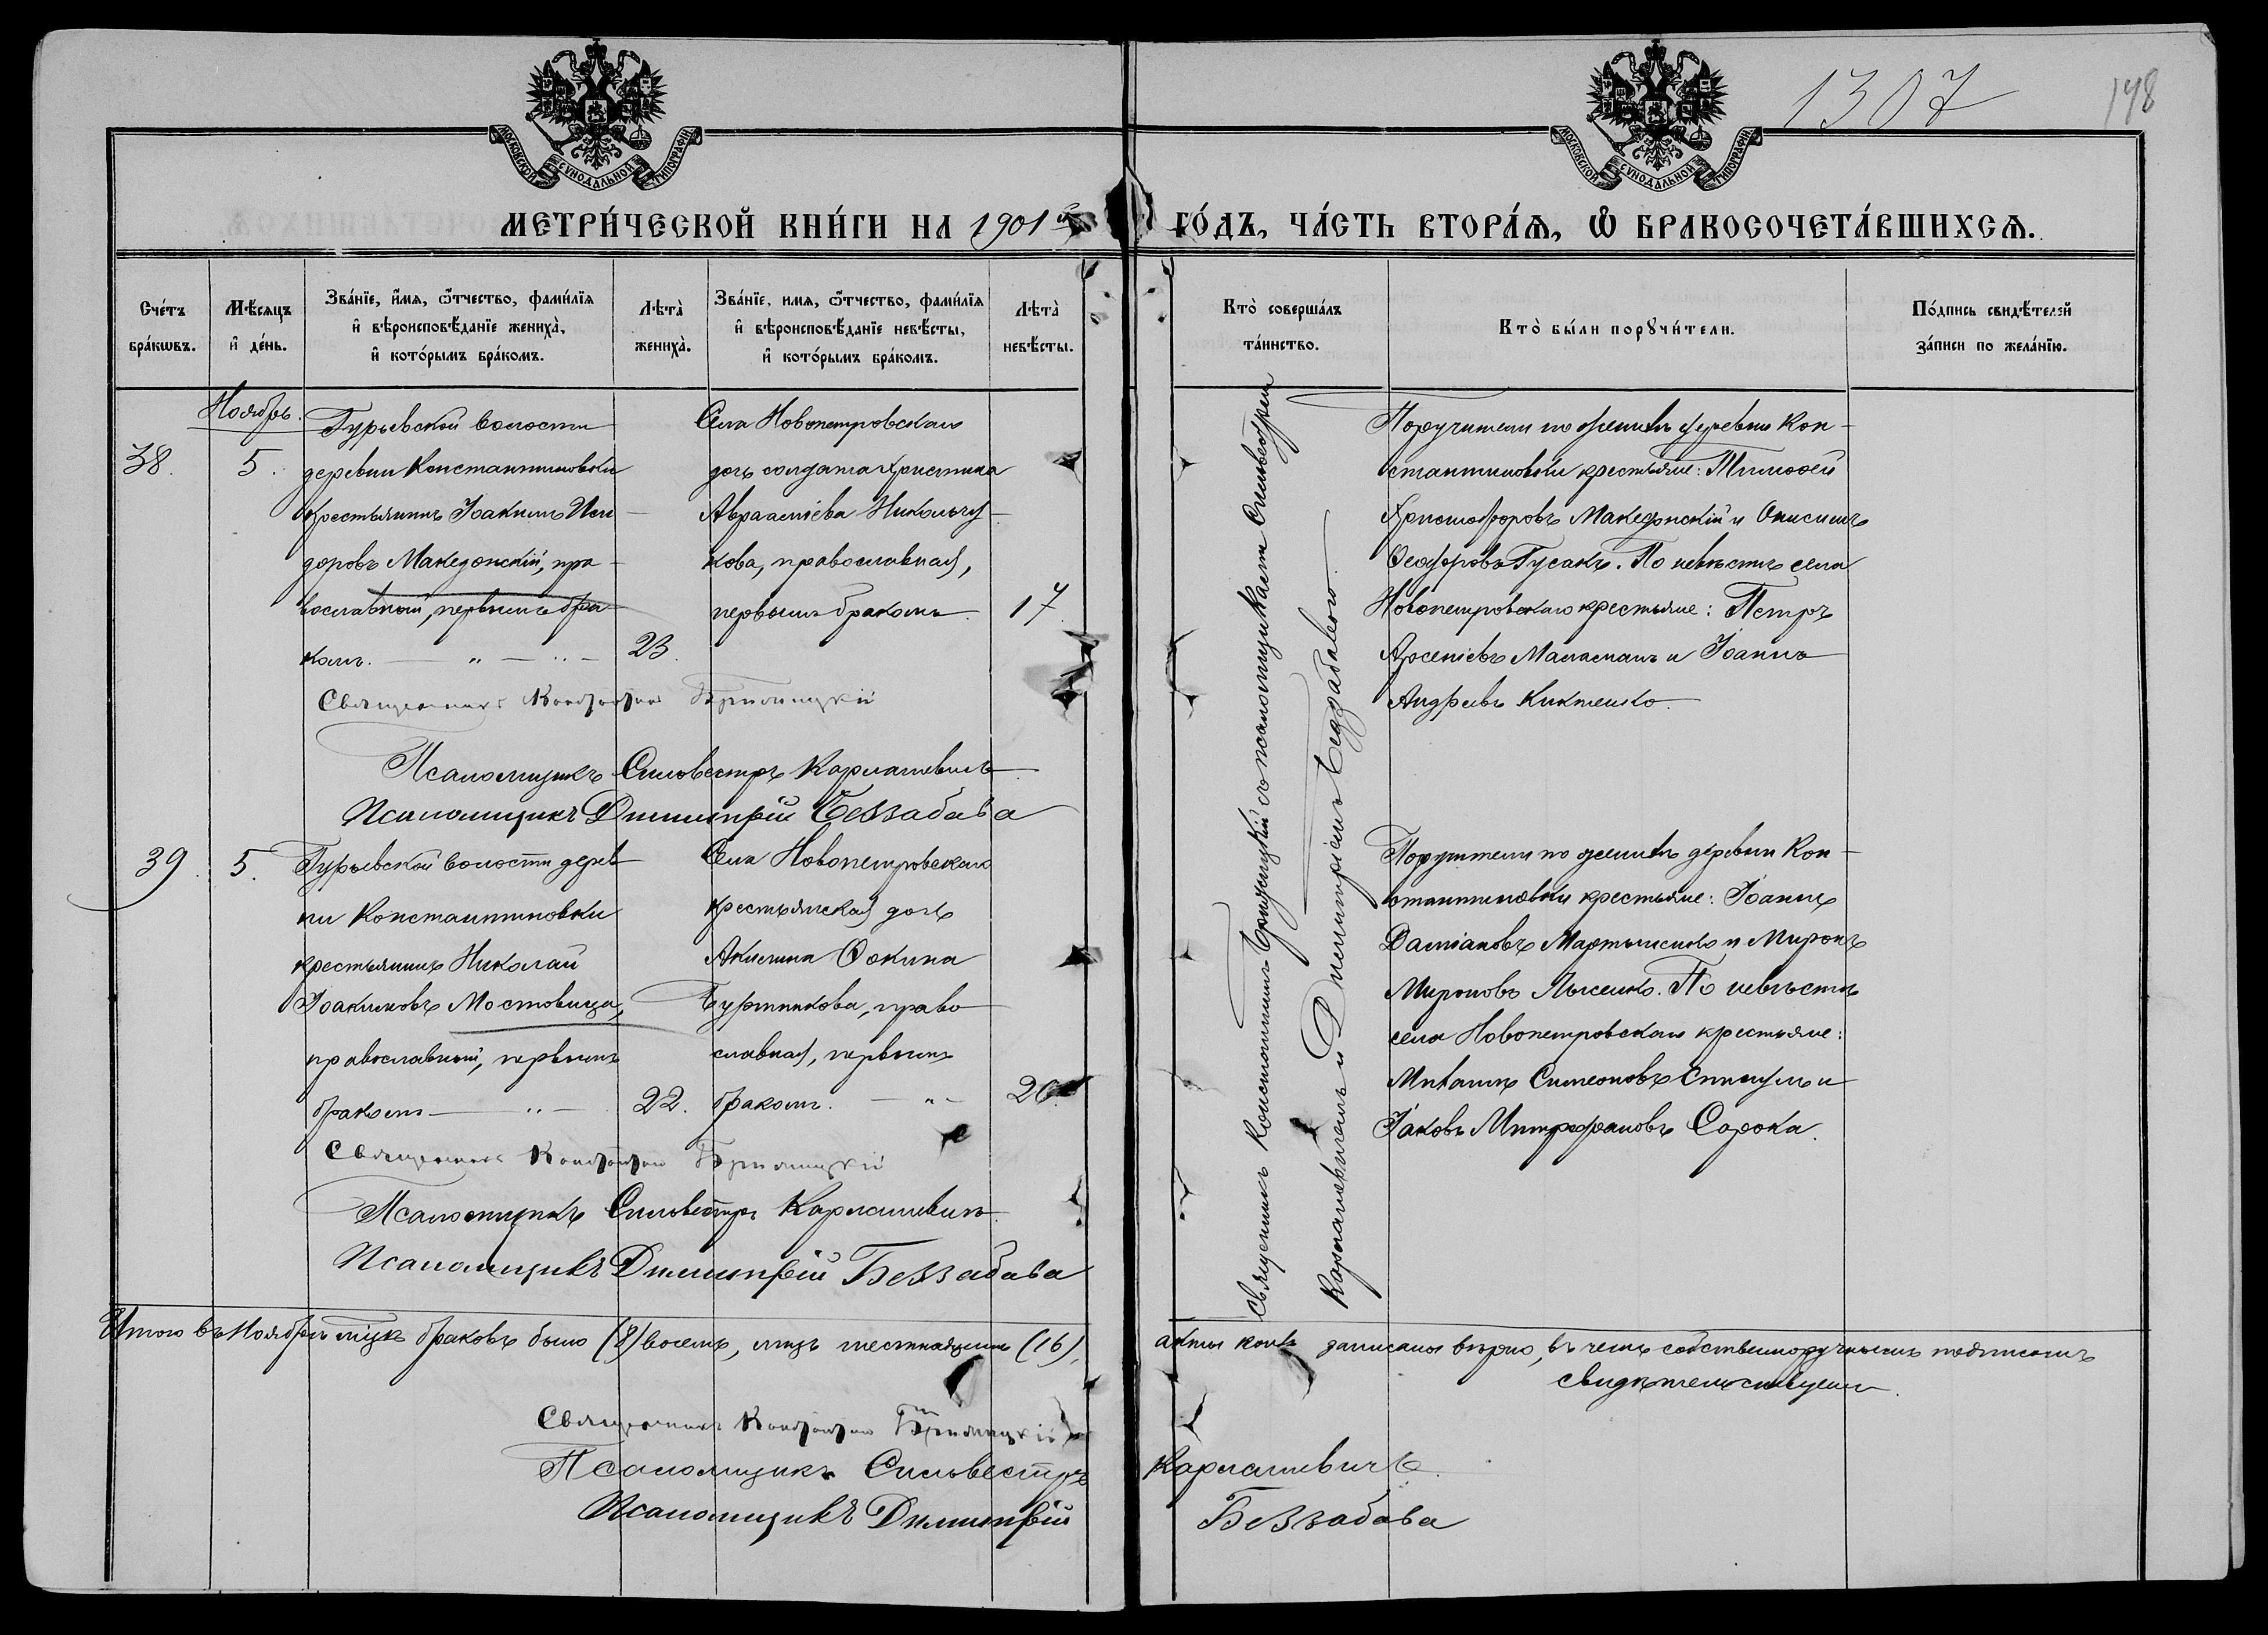 1307
148
МОСКОВСКОЙ СѴНОДАЛЬНОЙ ТИПОГРАФІИ
МОСКОВСКОЙ СѴНОДАЛЬНОЙ ТИПОГРАФІИ
МЕТРИ́ЧЕСКОЙ КНИ́ГИ НА 1901й ГО́ДЪ, ЧА́СТЬ ВТОРА́Ѧ, Ѡ҆ БРАКОСОЧЕТА́ВШИХСѦ.
Сче́тъ
бра́кѡвъ.
Мѣ́сѧцъ
и҆ де́нь.
Зва́нїе, и҆́мѧ, ѻ҆́тчество, фами́лїѧ
и҆ вѣроисповѣ́данїе жениха̀,
и҆ кото́рымъ бра́комъ.
Лѣта̀
жениха̀.
Зва́нїе, имѧ, ѻ҆́тчество, фами́лїѧ
и҆ вѣроисповѣ́данїе невѣ́сты,
и҆ кото́рымъ бра́комъ.
Лѣта̀
невѣ́сты.
Кто̀ соверша́лъ
та́инство.
Кто̀ бы́ли порꙋчи́тели.
По́дпись свидѣ́телей
за́писи по жела́нїю.
Ноябрь.
38.
5.
Гурьевской волости
деревни Константиновки
крестьянинъ Іоакимъ Иси-
доровъ Македонскій, пра-
вославный, первымъ бра-
комъ.
23.
Села Новопетровскаго
дочь солдата Христина
Авраамiева Никольчу-
кова, православная,
первымъ бракомъ.
17.
Священникъ Константинъ
Псаломщикъ Сильвестръ Карпашевичъ
Псаломщикъ Димитрій Беззабава
Поручители по женихѣ деревни Кон-
стантиновки крестьяне: Тимоѳей
Христофоровъ Македонскій и Онисимъ
Ѳеодоровъ Гусакъ. По невѣстѣ села
Новопетровскаго крестьяне: Петръ
Арсеніевъ Маласманъ и Іоаннъ
Андреевъ Киктенко.
Священникъ Константинъ съ псаломщиками Сильвестромъ
Карпашевичемъ и Димитріемъ Беззабавою.
39.
5.
Гурьевской волости дерев-
ни Константиновки
крестьянинъ Николай
Іоакимовъ Мостовица,
православный, первымъ
бракомъ
22.
Села Новопетровскаго
крестьянская дочь
Акилина Ѳокина
Буртникова, право
славная, первымъ
бракомъ.
20.
Священникъ Константинъ
Псаломщикъ Сильвестръ Карпашевичъ.
Псаломщикъ Димитрій Беззабава
Поручители по женихѣ деревни Кон-
стантиновки крестьяне: Іоаннъ
Даміановъ Мартыненко и Миронъ
Мироновъ Лысенко. По невѣстѣ
села Новопетровскаго крестьяне:
Михаилъ Симеоновъ и
Іаковъ Митрофановъ Сорока.
Итого въ Ноябрѣ м-цѣ браковъ было (8) восемь, лицъ шестнадцать (16), акты коихъ записаны вѣрно, въ чемъ собственноручнымъ подписомъ
свидѣтельствуемъ.
Священникъ Константинъ
Псаломщикъ Сильвестръ Карпашевичъ.
Псаломщикъ Димитрій Беззабава